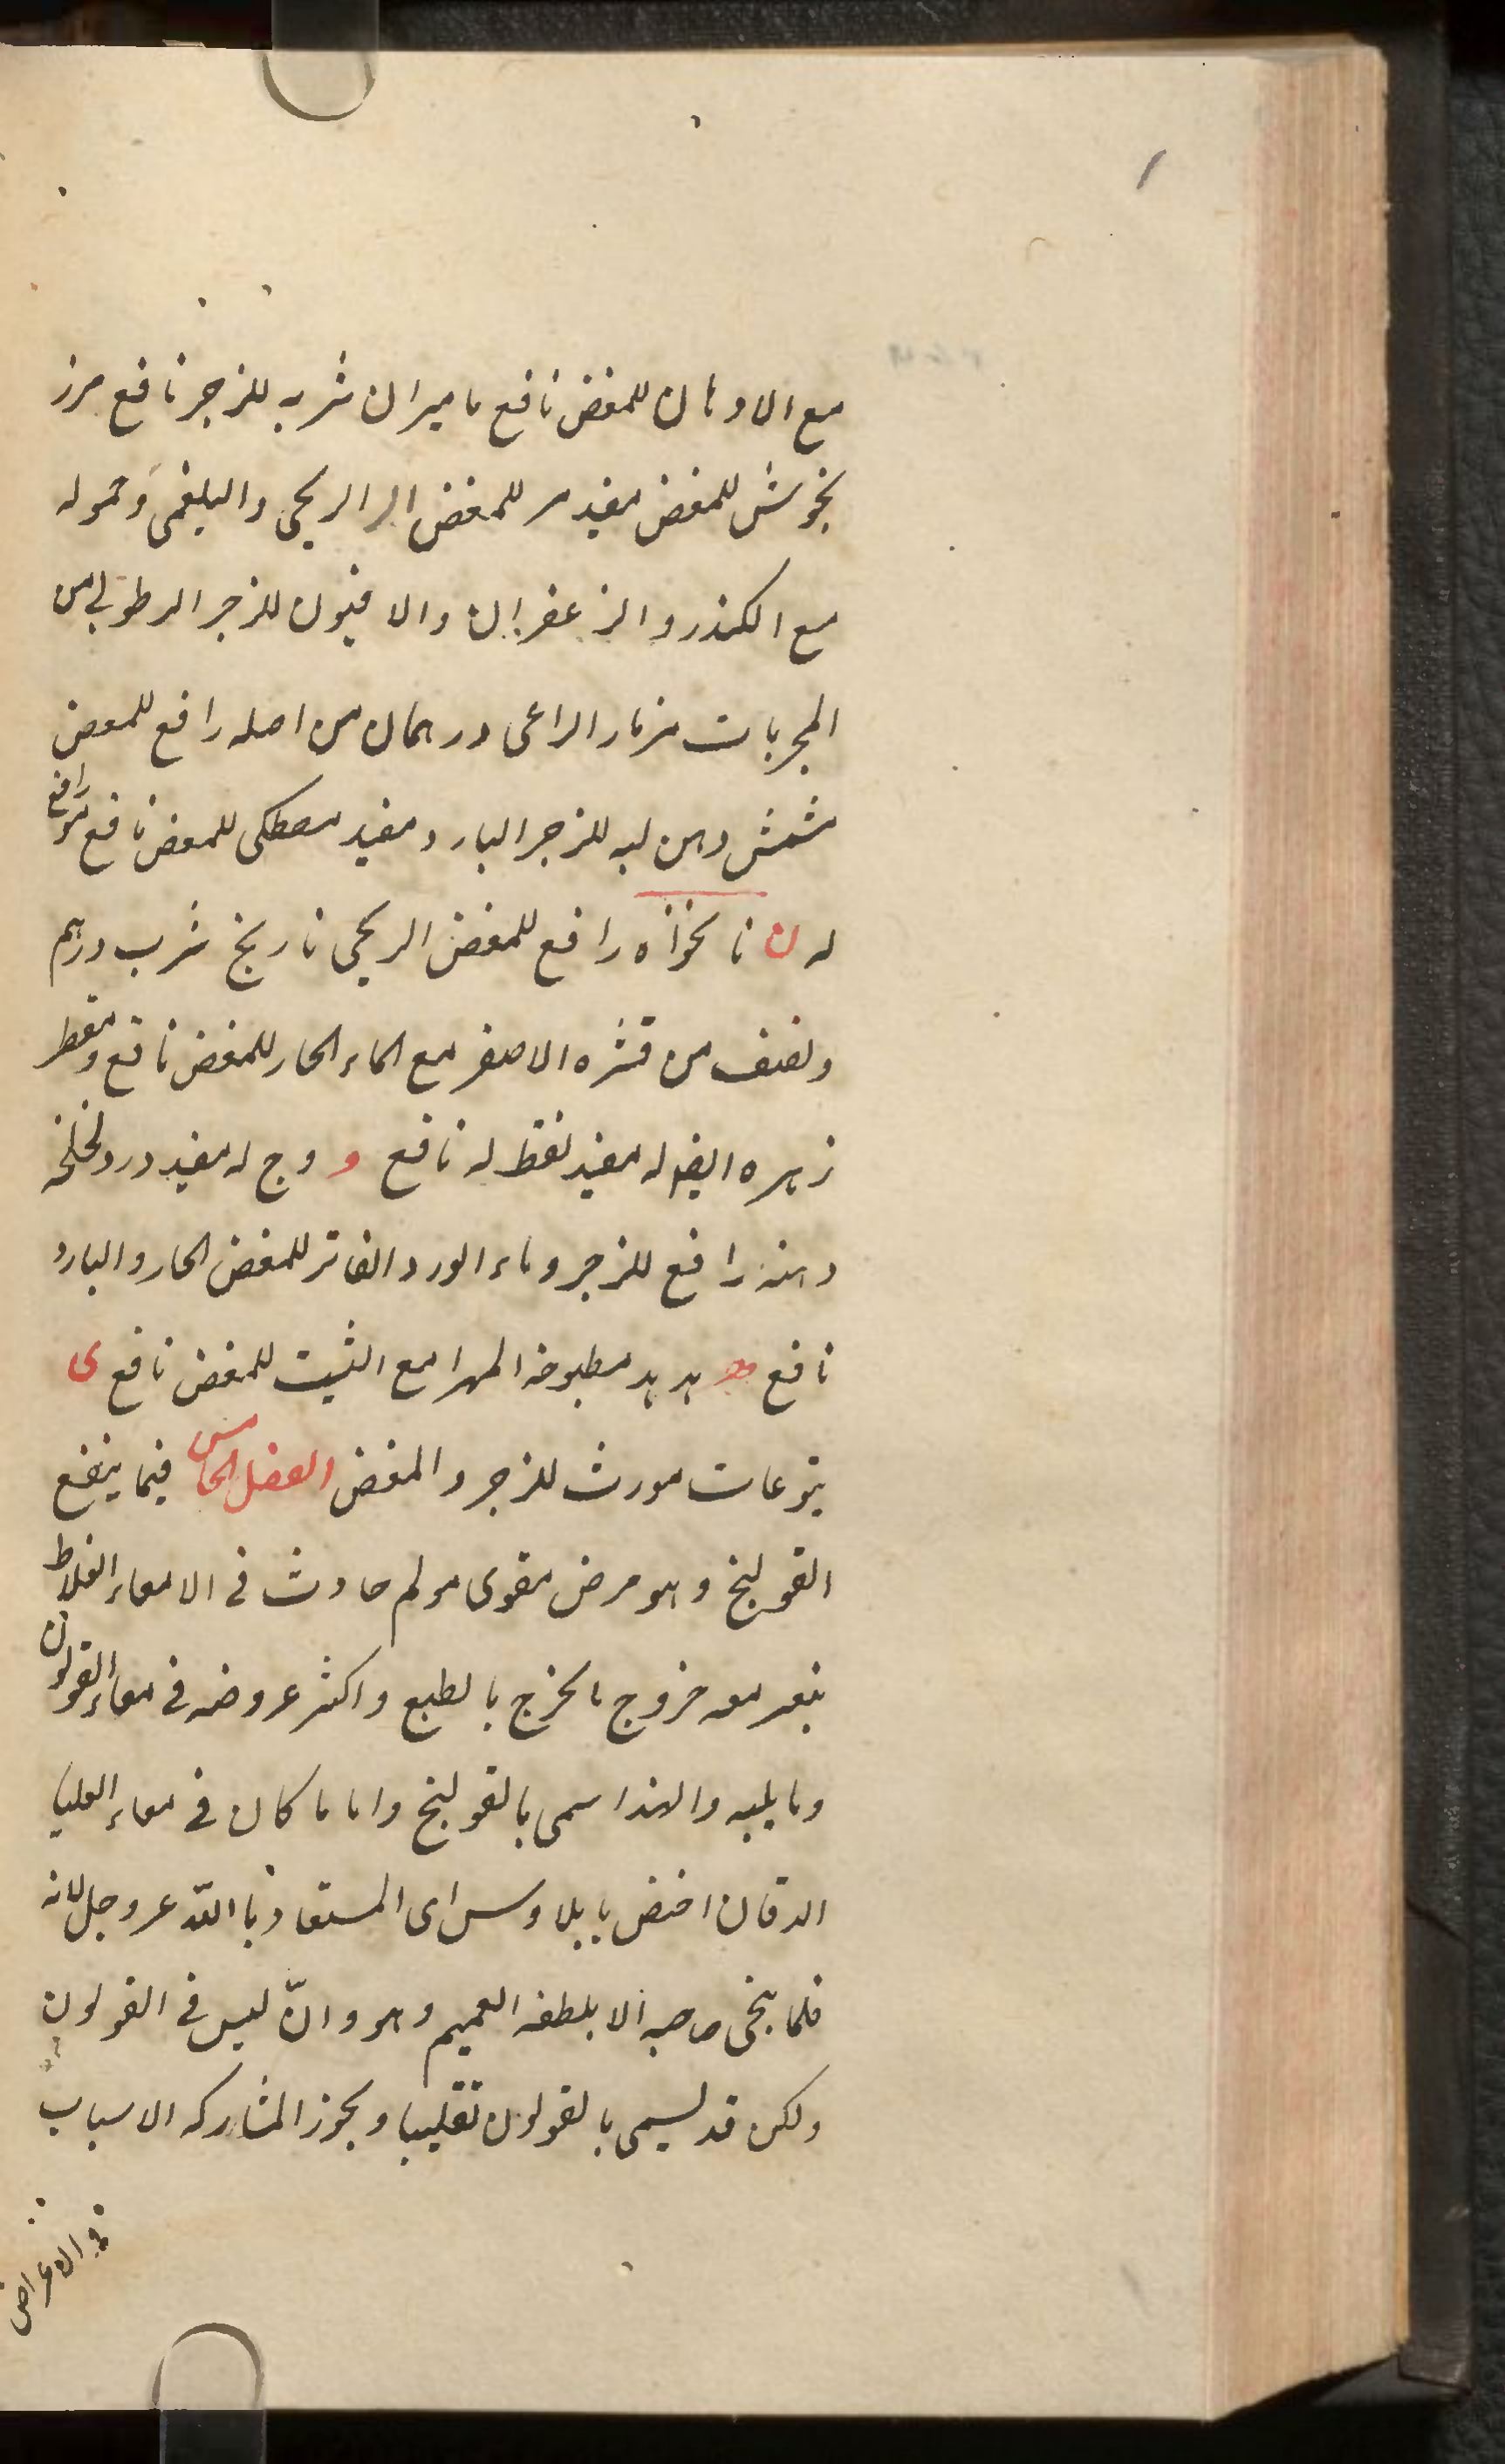 مع الادهان للمغض نافع ماميران شربه للزجر نافع مرز
بخوش للمغض مفيد مر للمغض الريحى والبلغمى وحموله
مع الكندر والزعفران والافيون للزجر الرطوبى من
المجربات مزمار الراعى درهمان من اصله رافع للمعض
مشمش دهن لبه للزجر البارد مفيد مصطكى للمعض نافع رافع
له ن نانخواه رافع للمغض الريحى نارنج شرب درهم
ونصف من قشره الاصفر مع الماء الحار للمغض نافع
زهره ايضا له مفيد نفط له نافع و وج له مفيد ورد
دهنه رافع للزجر وماء الورد الفاتر للمغض الحار والبارد
نافع ه هدهد مطبوخه المهرا مع الشبت للمغض نافع ى
يتوعات مورث للزجر والمغض الفصل الخامس فيما ينفع
القولنج وهو مرض مقوى مولم حادث فى الامعاء الغلاظ
يتعسر معه خروج مايخرج بالطبع واكثر عروضه فى معاء القولون
وما يليه ولهذا سمى بالقولنج واما ما كان فى معاء العليا
الدقاق اختص بايلاوس اى المستعاذ باالله عز وجل لانه
فلما ينجى صاحبه الا بلطفه العميم وهو وان ليس فى القولون
ولكن قد يسمى بالقولون تغليبا ويجوز المشاركه الاسباب
والاعراض